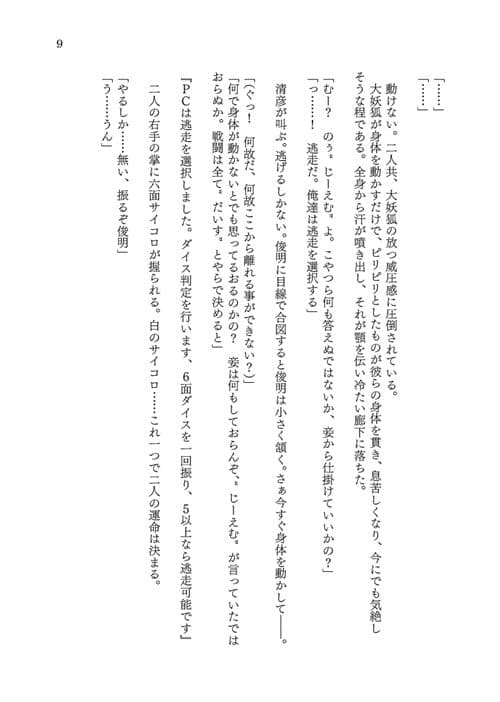 9
「……」
「……」
動けない。二人共、大妖狐の放つ威圧感に圧倒されている。
大妖狐が身体を動かすだけで、ピリピリとしたものが彼らの身体を貫き、息苦しくなり、今にでも気絶し
そうな程である。全身から汗が噴き出し、それが顎を伝い冷たい廊下に落ちた。
「むー？　のぅ〝じーえむ〟よ。こやつら何も答えぬではないか、妾から仕掛けていいかの？」
「っ……！　逃走だ。俺達は逃走を選択する」
清彦が叫ぶ。逃げるしかない。俊明に目線で合図すると俊明は小さく頷く。さぁ今すぐ身体を動かして――。
「（ぐっ！　何故だ、何故ここから離れる事ができない？）」
「何で身体が動かないとでも思ってるおるのかの？　妾は何もしておらんぞ、〝じーえむ〟が言っていたでは
おらぬか。戦闘は全て〝だいす〟とやらで決めると」
『ＰＣは逃走を選択しました。ダイス判定を行います、６面ダイスを一回振り、５以上なら逃走可能です』
二人の右手の掌に六面サイコロが握られる。白のサイコロ……これ一つで二人の運命は決まる。
「やるしか……無い、振るぞ俊明」
「う……うん」